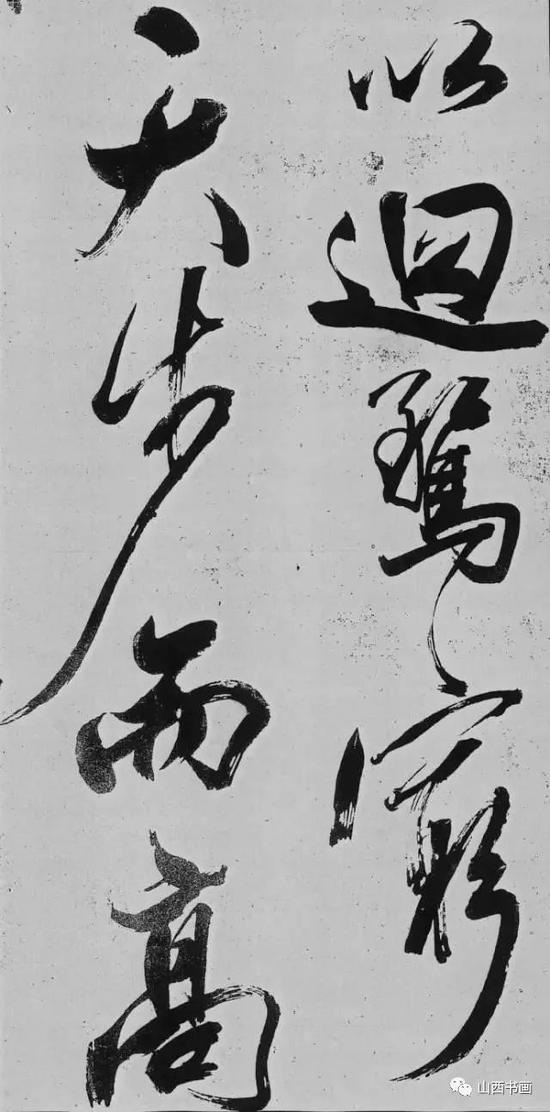 以迴騖窮
天步而高
山西书画